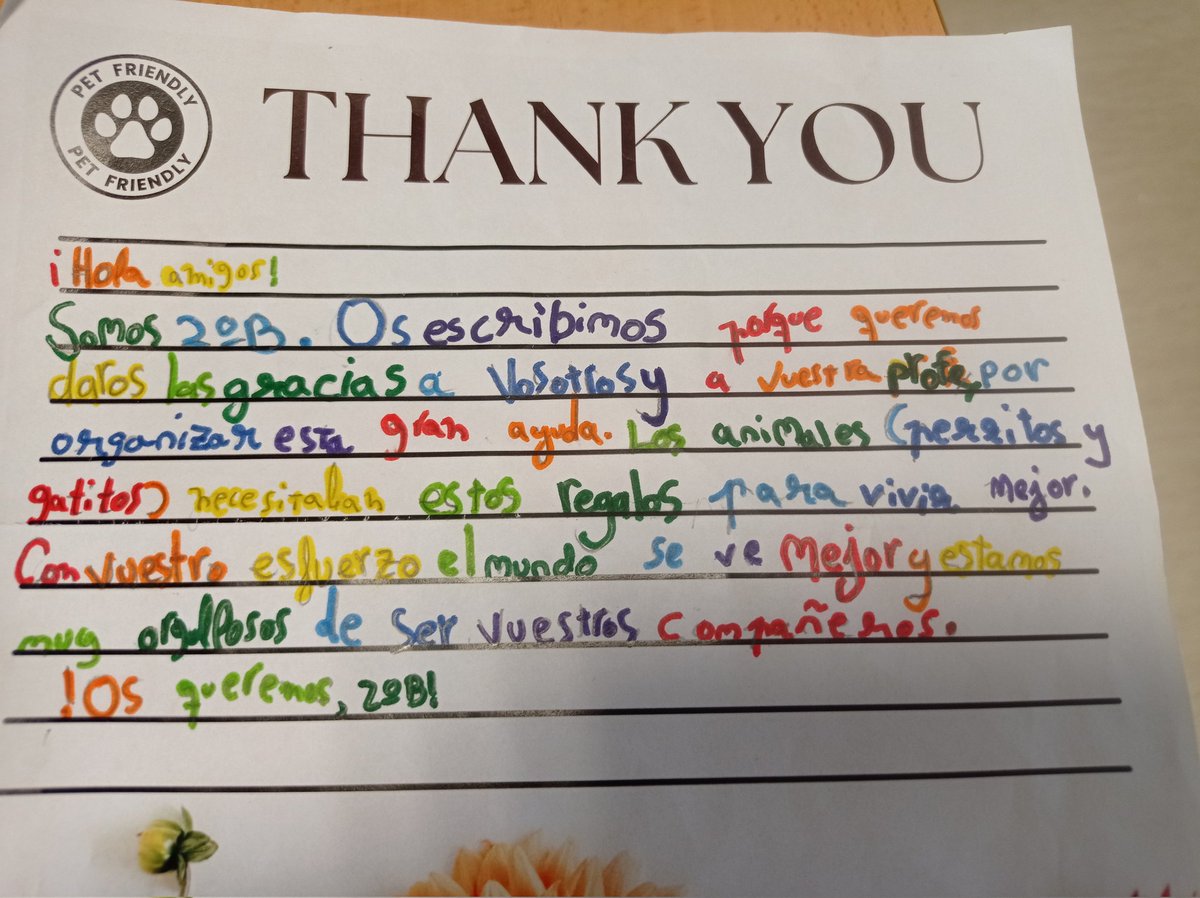 PET FRIENDLY
PET FRIENDLY
THANK YOU
¡Hola amigos!
Somos 2ºB. Os escribimos porque queremos
daros las gracias a vosotros y a vuestra profe, por
organizar esta gran ayuda. Los animales (perritos y
gatitos) necesitaban estos regalos para vivir mejor.
Con vuestro esfuerzo el mundo se ve mejor y estamos
muy orgullosos de ser vuestros compañeros.
!Os queremos, 2ºB!